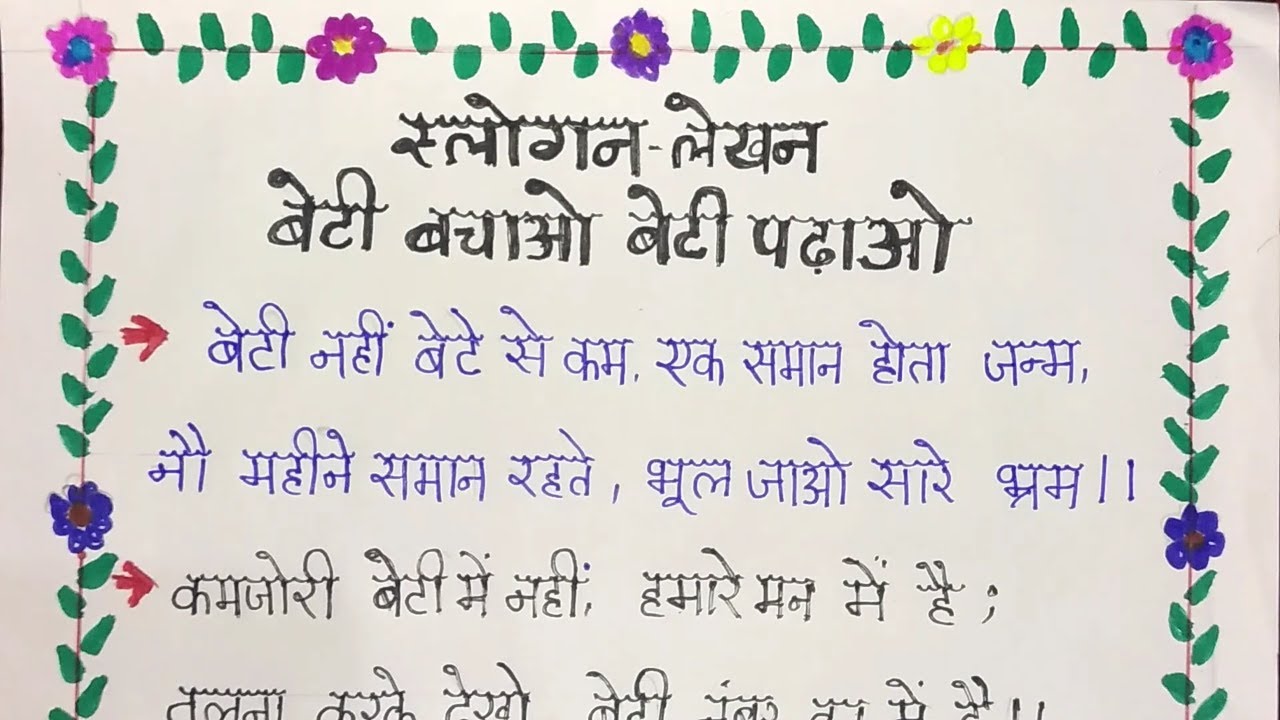 स्लोगन-लेखन
बेटी बचाओ बेटी पढ़ाओ
बेटी नहीं बेटे से कम, एक समान होता जन्म,
नौ महीने समान रहते, भूल जाओ सारे भ्रम।।
कमजोरी बेटी में नहीं, हमारे मन में है;
तुलना करके देखो बेटी नंबर वन में है।।